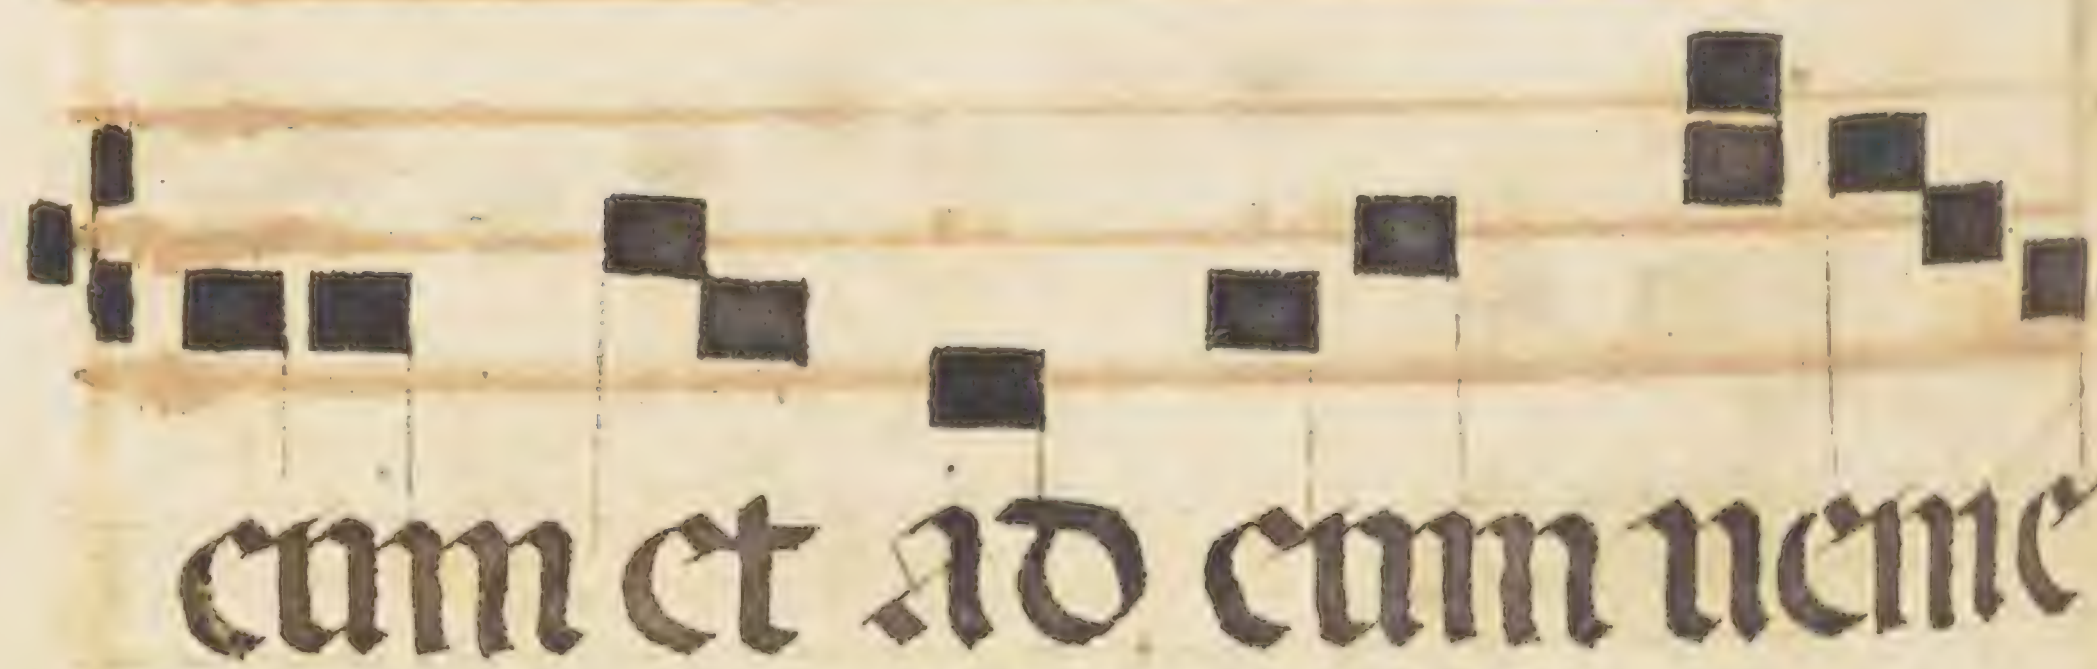 eum et ad eum uenie